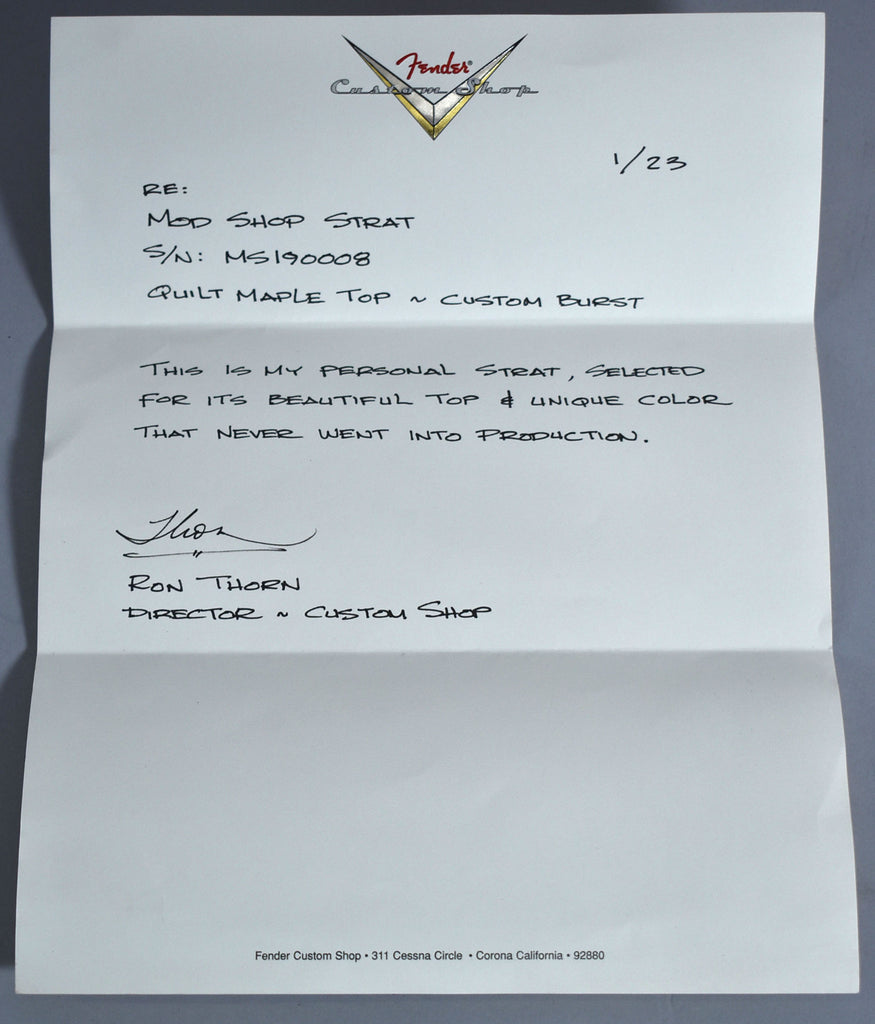 Fender®
Custom Shop
1/23
RE:
MOD SHOP STRAT
S/N: MS190008
QUILT MAPLE TOP ~ CUSTOM BURST
THIS IS MY PERSONAL STRAT, SELECTED
FOR ITS BEAUTIFUL TOP & UNIQUE COLOR
THAT NEVER WENT INTO PRODUCTION.
Thorn
RON THORN
DIRECTOR ~ CUSTOM SHOP
Fender Custom Shop • 311 Cessna Circle • Corona California • 92880